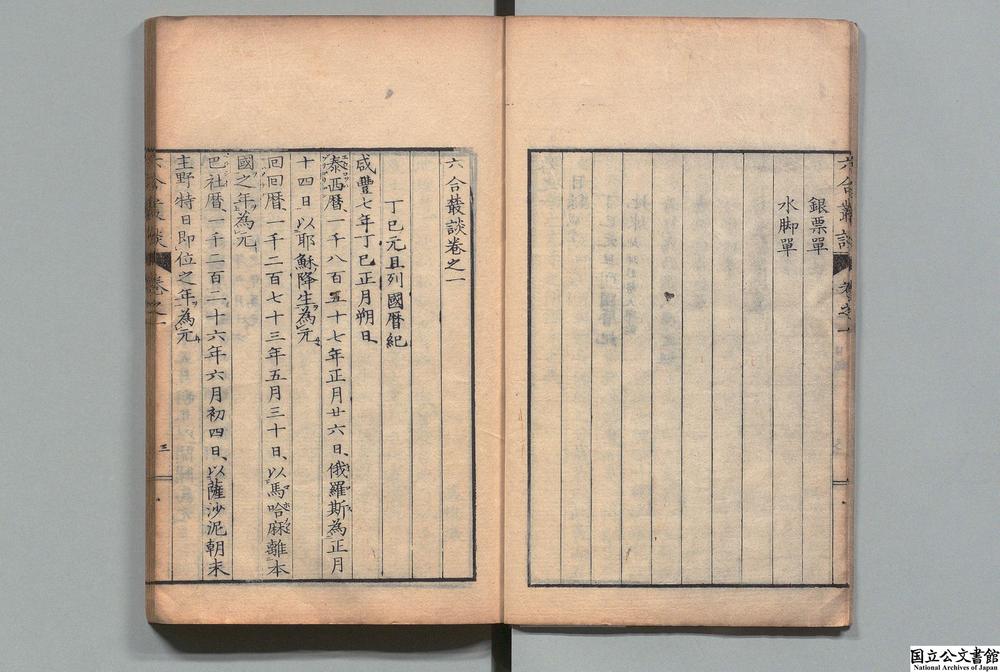 六合叢談
卷之一
銀票單
水脚單
六合叢談卷之一
丁巳元旦列國曆紀
咸豐七年丁巳正月朔日
泰西曆、一千八百五十七年正月廿六日、俄羅斯為正月
十四日以耶穌降生為元
回回曆、一千二百七十三年五月三十日、以馬哈麻離本
國之年為元
巴社曆、一千二百二十六年六月初四日、以薩沙泥朝末
主野特日即位之年為元
六合叢談
卷之一
三
国立公文書館
National Archives of Japan